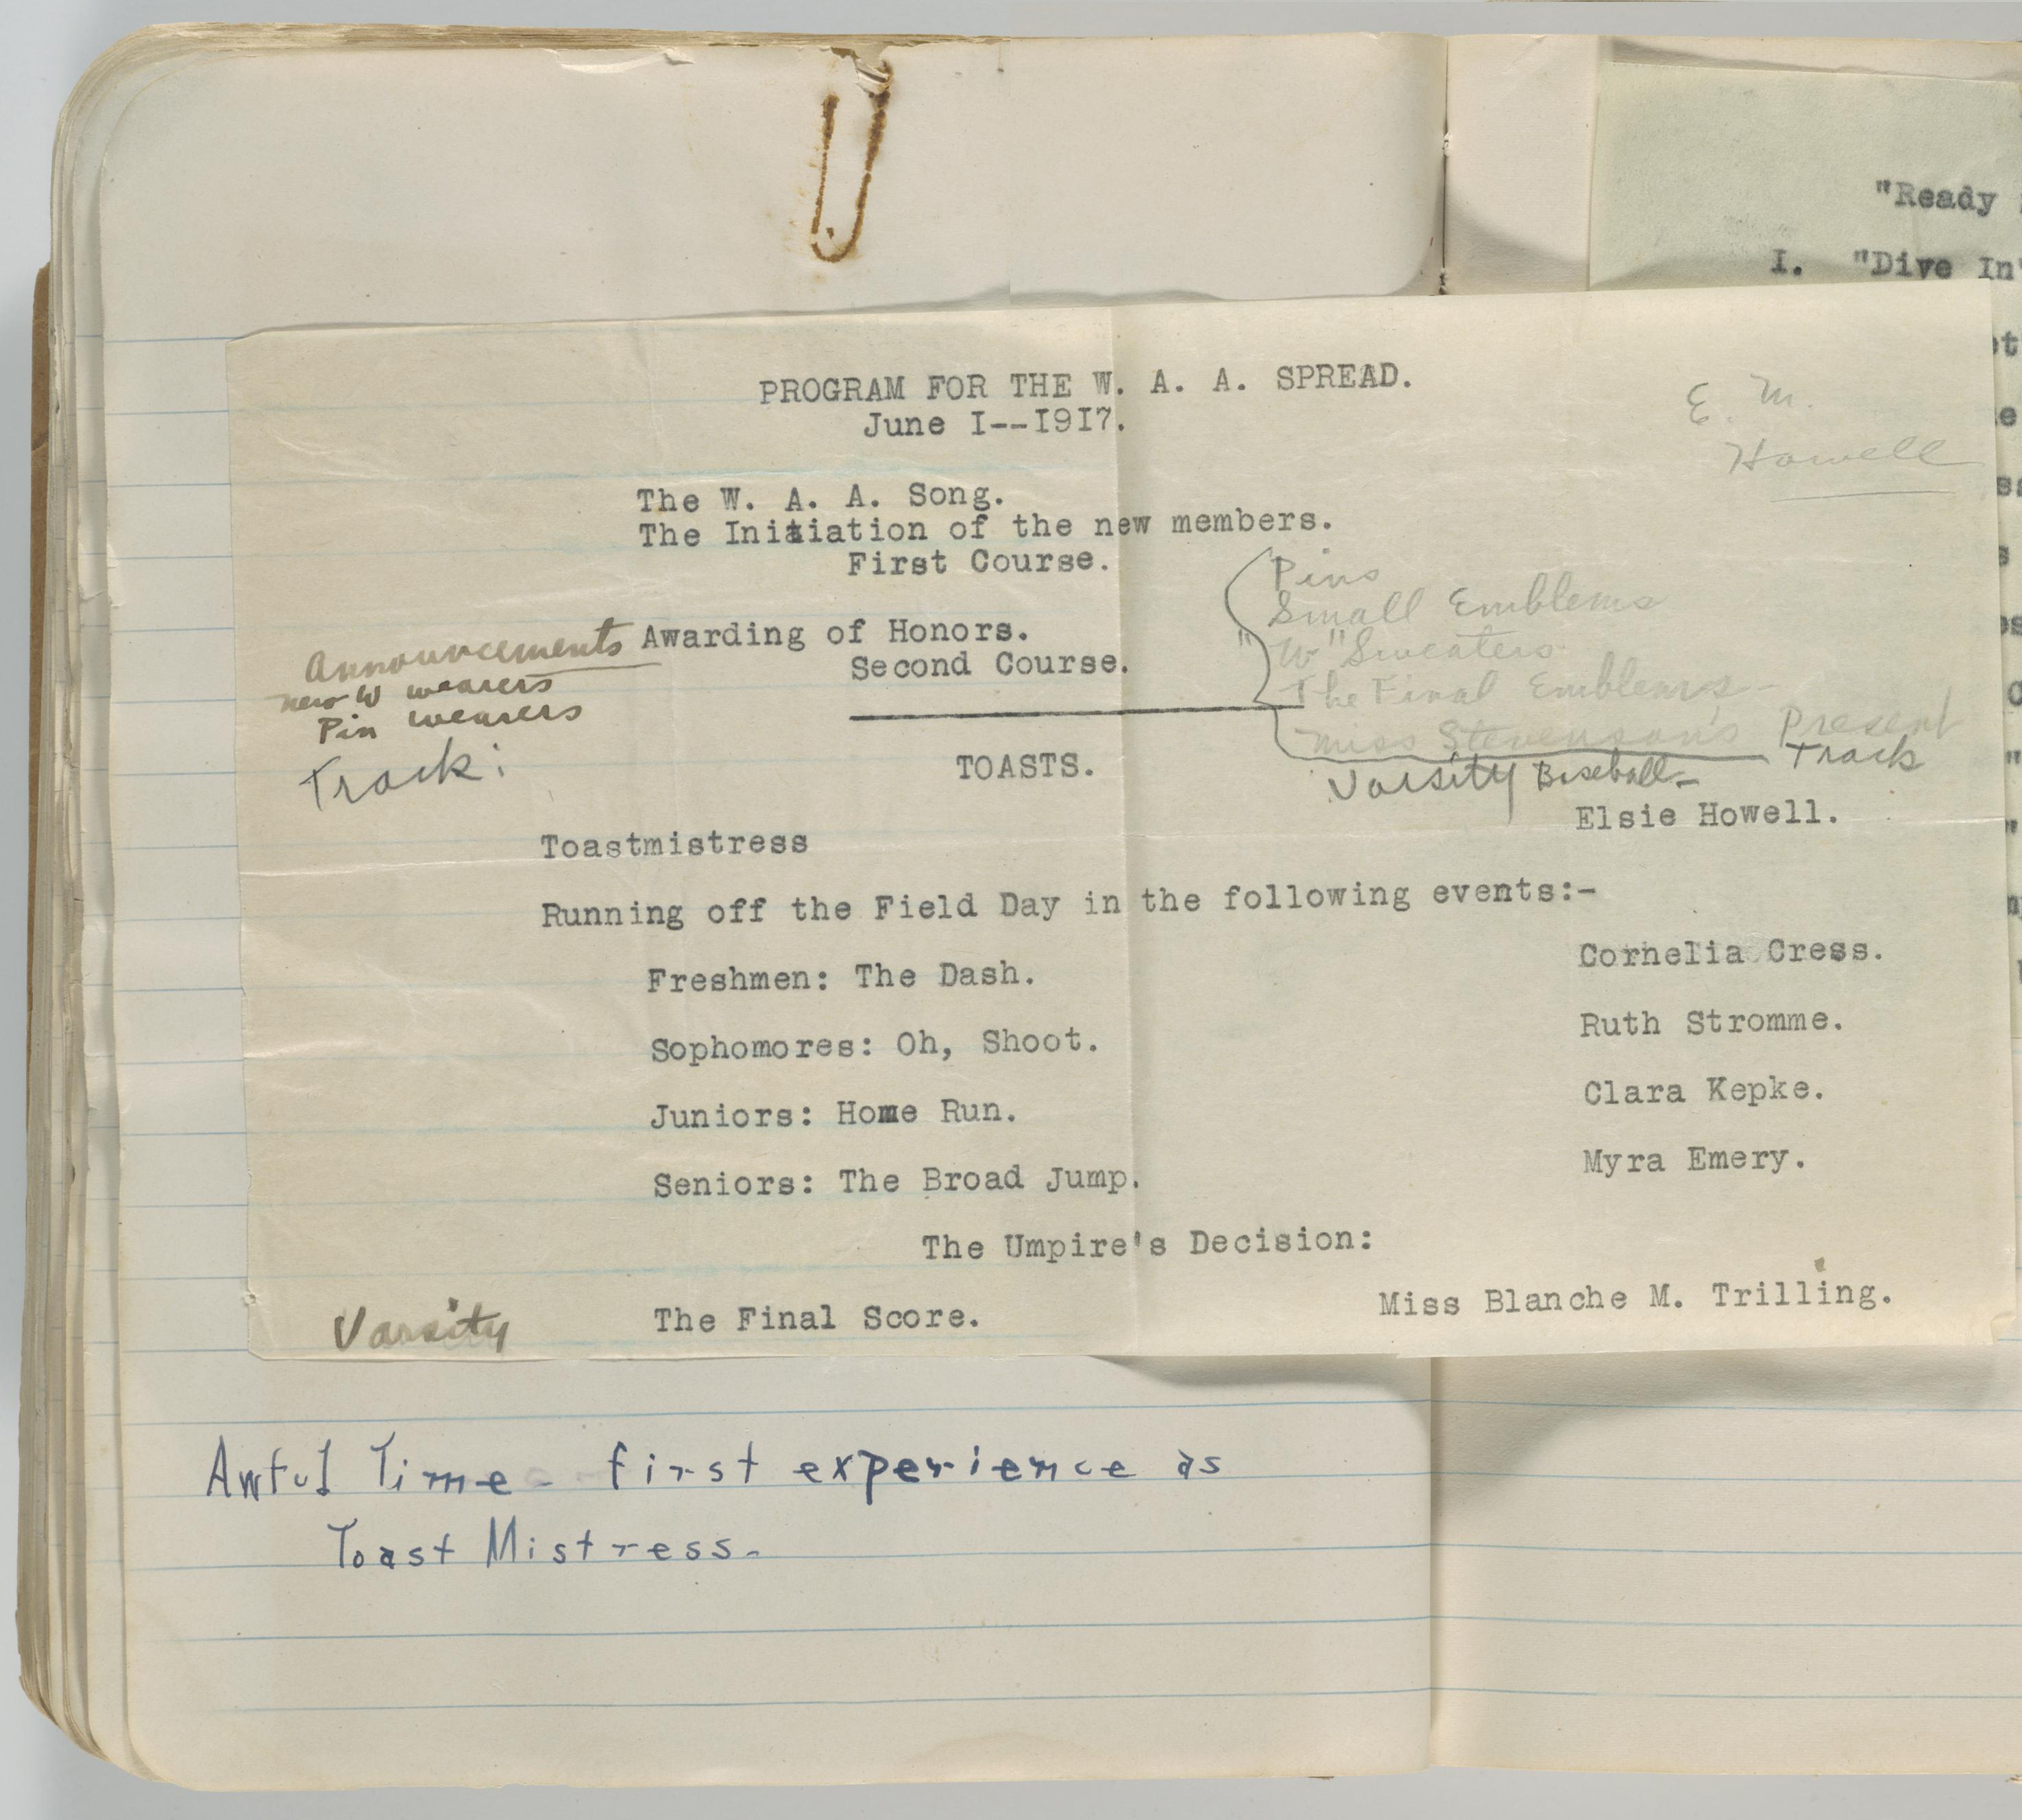 "Ready
I. "Dive In"
PROGRAM FOR THE W. A. A. SPREAD.
June I--I9I7.
E. M.
Howell
The W. A. A. Song.
The Initiation of the new members.
First Course.
Pins
Small Emblems
"W" Sweaters
The Final Emblems-
Miss Stevenson's Present
Track
Varsity Baseball-
Announcements
new W wearers
Pin wearers
Track:
Awarding of Honors.
Second Course.
TOASTS.
Toastmistress Elsie Howell.
Running off the Field Day in the following events:-
Freshmen: The Dash. Cornelia Cress.
Sophomores: Oh, Shoot. Ruth Stromme.
Juniors: Home Run. Clara Kepke.
Seniors: The Broad Jump. Myra Emery.
The Umpire's Decision:
Varsity
The Final Score. Miss Blanche M. Trilling.
Awful Time - first experience as
Toast Mistress-